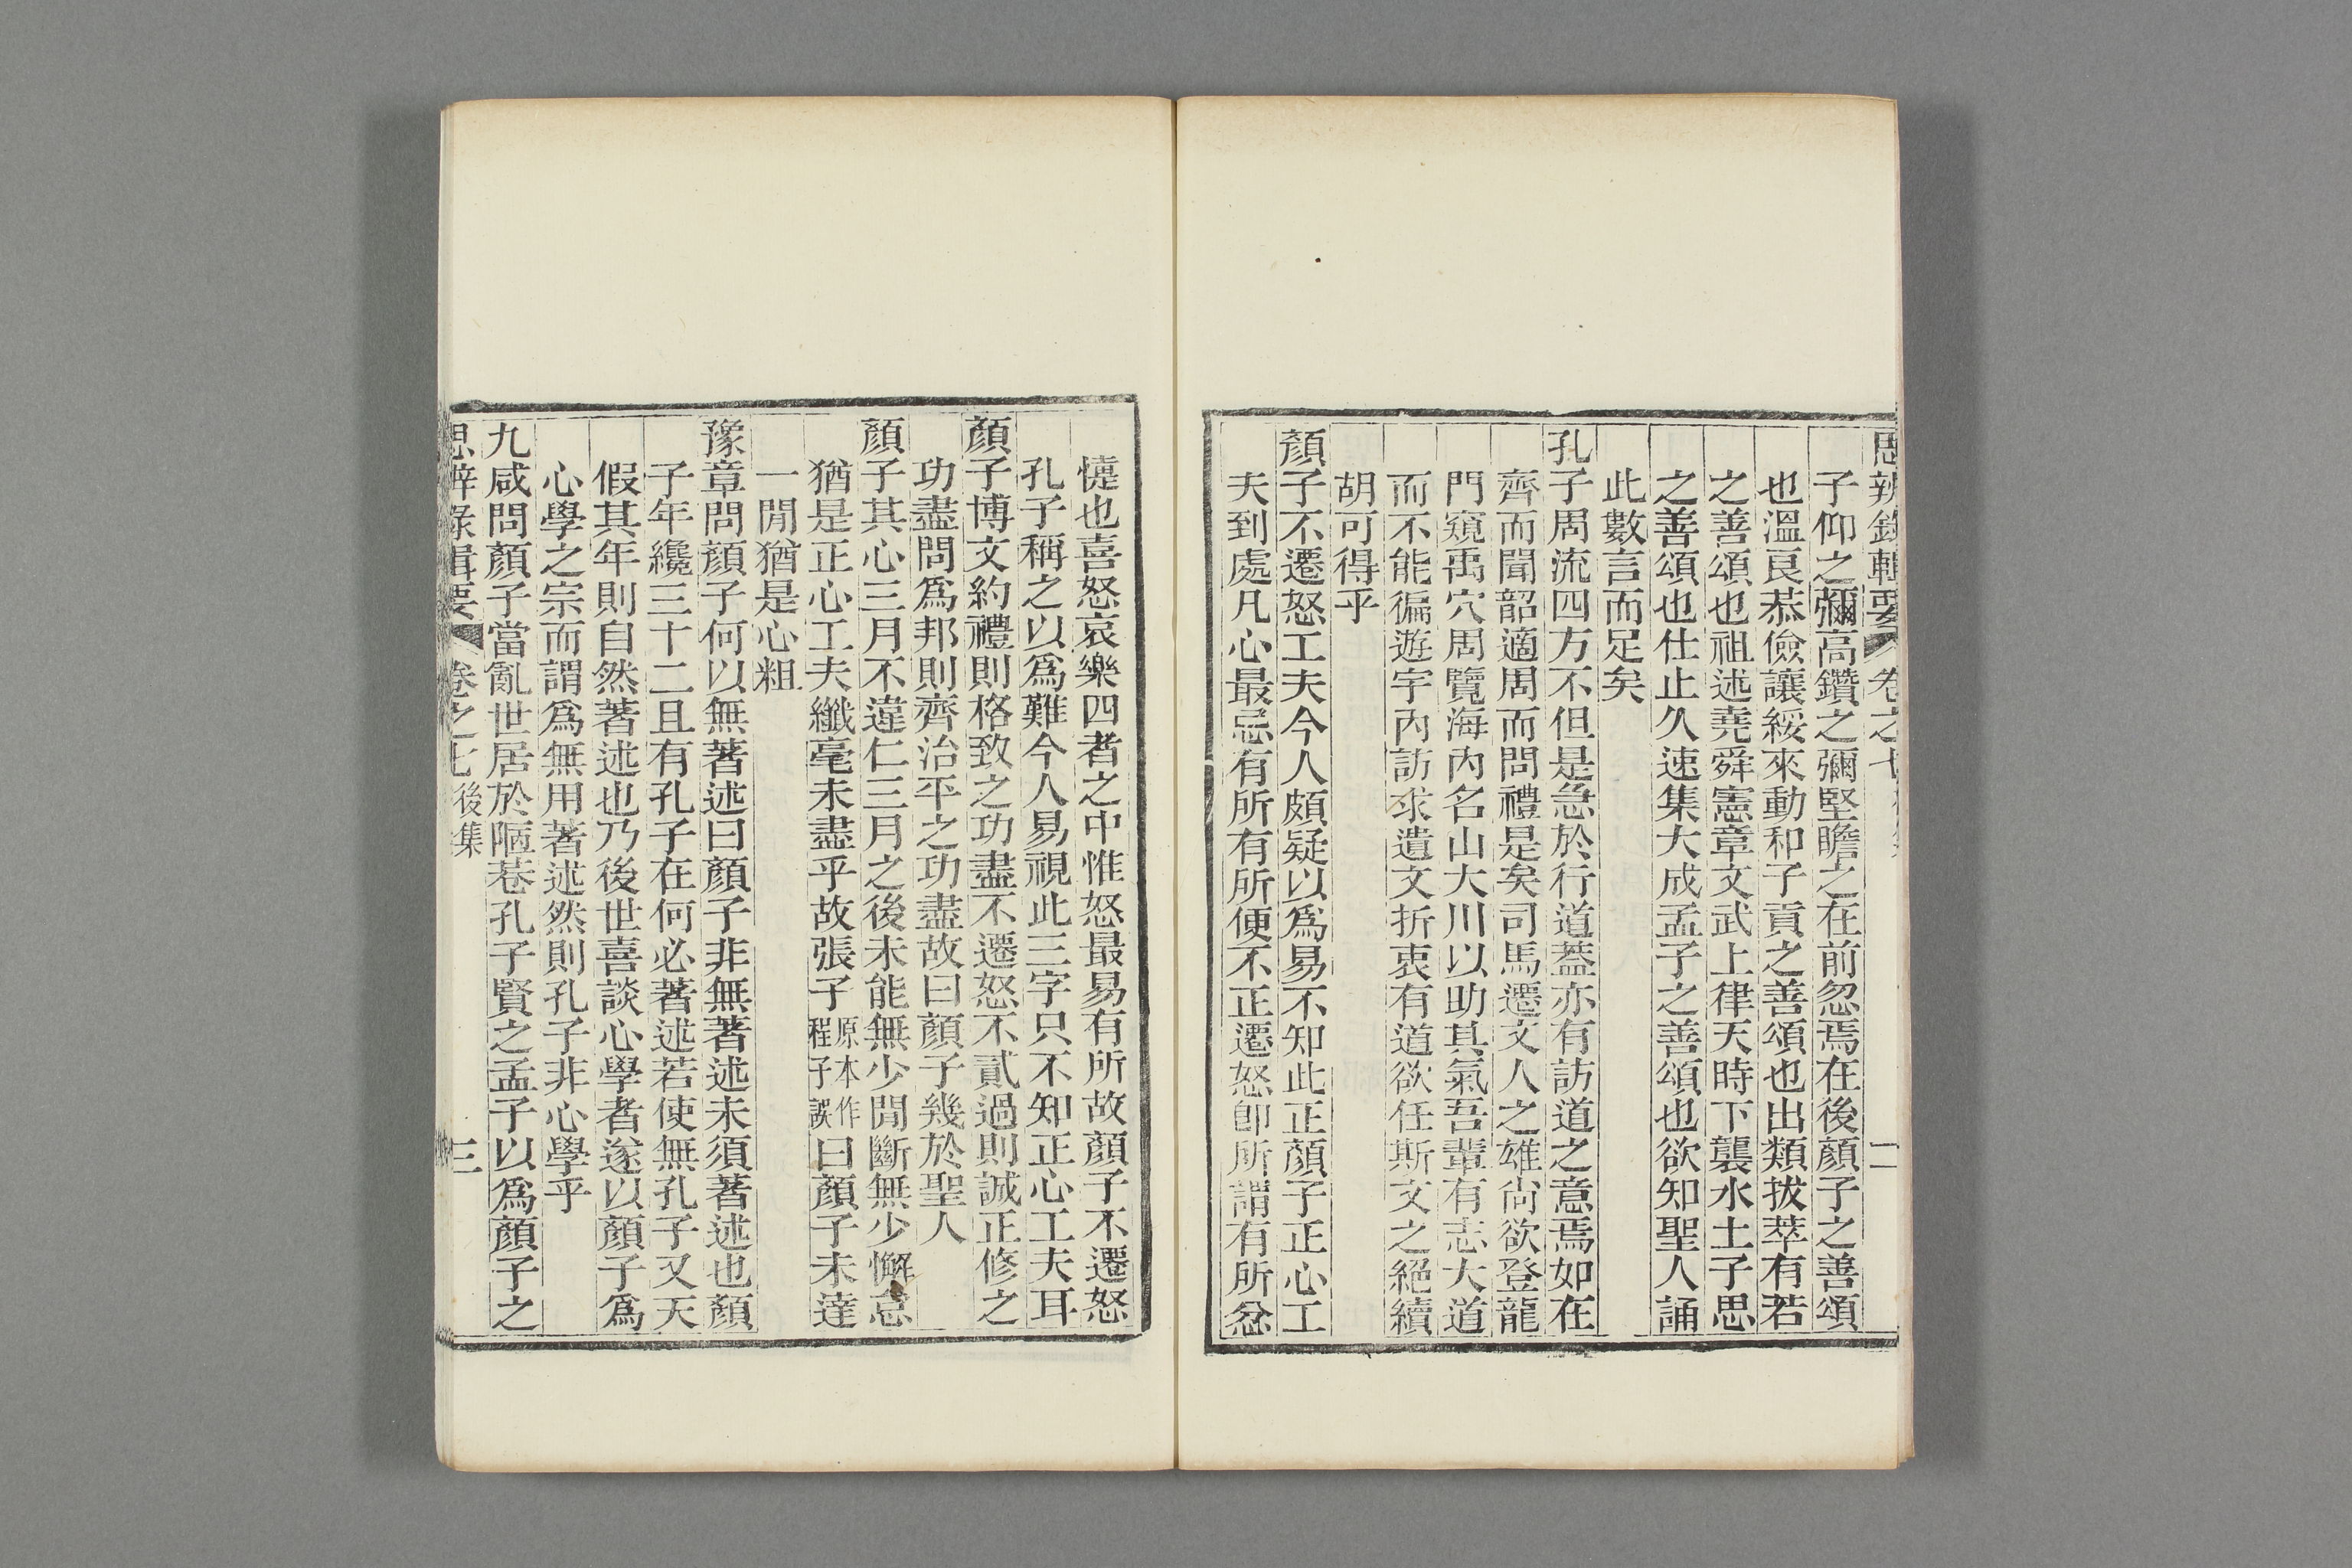 思辨錄輯要 卷之七 二
子仰之彌高鑽之彌堅瞻之在前忽焉在後顏子之善頌
也溫良恭儉讓綏來動和子貢之善頌也出類拔萃有若
之善頌也祖述堯舜憲章文武上律天時下襲水土子思
之善頌也仕止久速集大成孟子之善頌也欲知聖人誦
此數言而足矣
孔子周流四方不但是急於行道蓋亦有訪道之意焉如在
齊而聞韶適周而問禮是矣司馬遷文人之雄尚欲登龍
門窺禹穴周覽海內名山大川以助其氣吾輩有志大道
而不能徧遊宇內訪求遺文折衷有道欲任斯文之絕續
胡可得乎
顏子不遷怒工夫今人頗疑以爲易不知此正顏子正心工
夫到處凡心最忌有所有所便不正遷怒卽所謂有所忿
懥也喜怒哀樂四者之中惟怒最易有所故顏子不遷怒
孔子稱之以爲難今人易視此三字只不知正心工夫耳
顏子博文約禮則格致之功盡不遷怒不貳過則誠正修之
功盡問爲邦則齊治平之功盡故曰顏子幾於聖人
顏子其心三月不違仁三月之後未能無少閒斷無少懈怠
猶是正心工夫纖毫未盡乎故張子原本作程子誤曰顏子未達
一閒猶是心粗
豫章問顏子何以無著述曰顏子非無著述未須著述也顏
子年纔三十二且有孔子在何必著述若使無孔子又天
假其年則自然著述也乃後世喜談心學者遂以顏子爲
心學之宗而謂爲無用著述然則孔子非心學乎
九咸問顏子當亂世居於陋巷孔子賢之孟子以爲顏子之
思辨錄輯要 卷之七後集 三